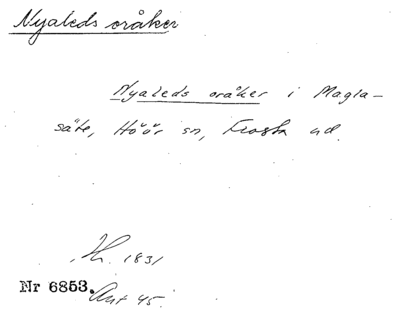 Nyaleds oråker
Nyaleds oråker i Magla-
säte, Höör sn, Frosta hd.
1831
Nr 6853. Ant 45.